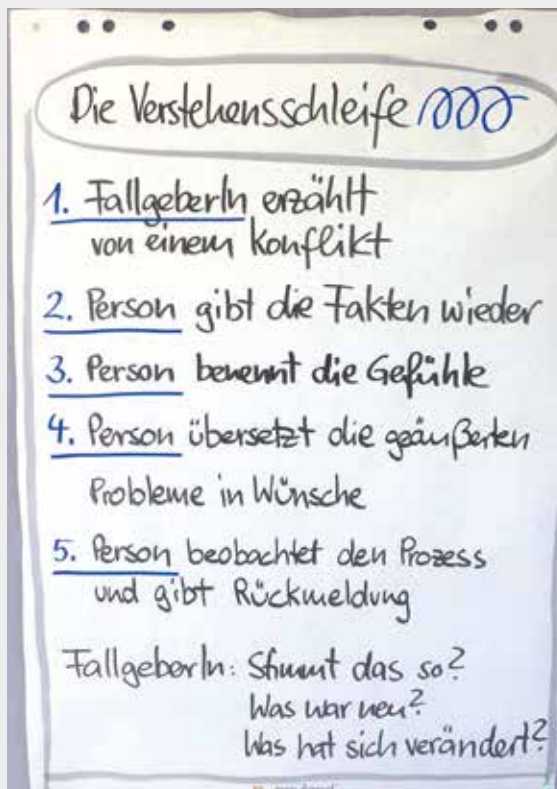 Die Verstehensschleife
1. FallgeberIn erzählt
von einem Konflikt
2. Person gibt die Fakten wieder
3. Person benennt die Gefühle
4. Person übersetzt die geäußerten
Probleme in Wünsche
5. Person beobachtet den Prozess
und gibt Rückmeldung
FallgeberIn: Stimmt das so?
Was war neu?
Was hat sich verändert?